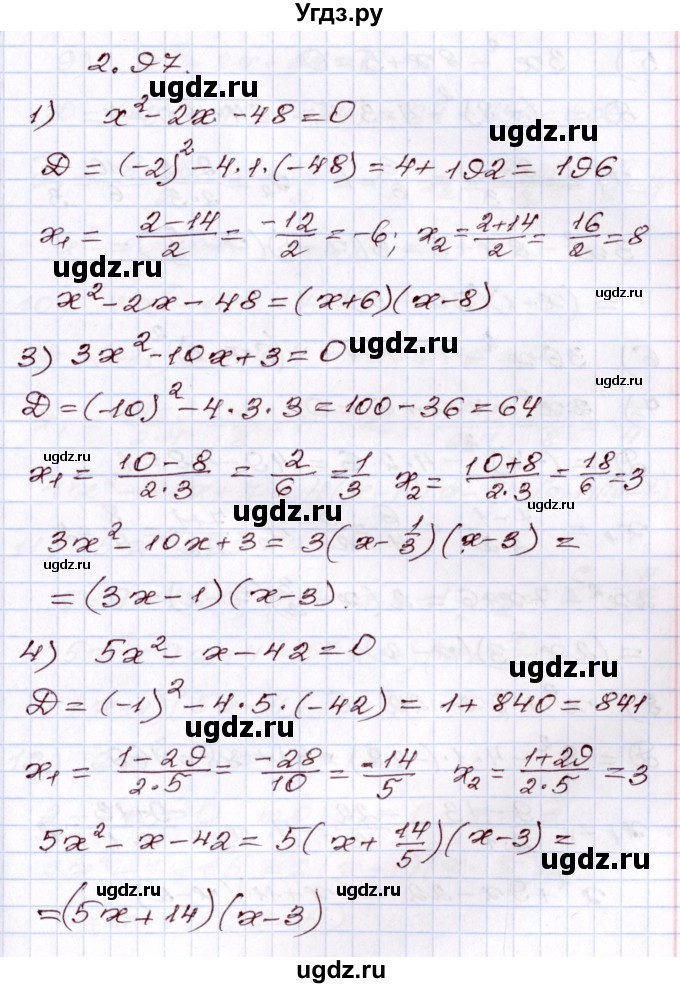 Угдз.ру
2.97.
1) x² - 2x - 48 = 0
ugdz.ru
D = (-2)² - 4·1·(-48) = 4 + 192 = 196
ugdz.ru
x₁ = (2-14)/2 = -12/2 = -6; x₂ = (2+14)/2 = 16/2 = 8
ugdz.ru
ugdz.ru
x² - 2x - 48 = (x+6)(x-8)
3) 3x² - 10x + 3 = 0
ugdz.ru
ugdz.ru
D = (-10)² - 4·3·3 = 100 - 36 = 64
ugdz.ru
x₁ = (10-8)/(2·3) = 2/6 = 1/3 x₂ = (10+8)/(2·3) = 18/6 = 3
ugdz.ru
ugdz.ru
3x² - 10x + 3 = 3(x - 1/3)(x-3) =
ugdz.ru
= (3x-1)(x-3).
4) 5x² - x - 42 = 0
ugdz.ru
ugdz.ru
D = (-1)² - 4·5·(-42) = 1 + 840 = 841
ugdz.ru
x₁ = (1-29)/(2·5) = -28/10 = -14/5 x₂ = (1+29)/(2·5) = 3
5x² - x - 42 = 5(x + 14/5)(x-3) =
ugdz.ru
ugdz.ru
ugdz.ru
= (5x+14)(x-3)
ugdz.ru